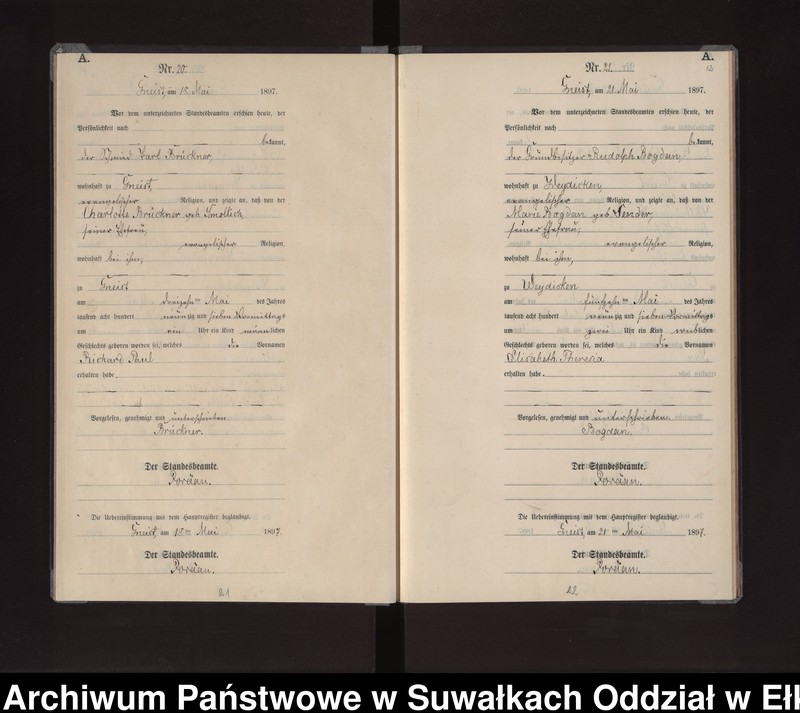 A.
Nr. 20.
Gneist, am 18. Mai 1897.
Vor dem unterzeichneten Standesbeamten erschien heute, der
Persönlichkeit nach
bekannt,
der Schmied Karl Brückner,
wohnhaft zu Gneist,
evangelischer Religion, und zeigte an, daß von der
Charlotte Brückner geb.
seiner Ehefrau,
evangelischer Religion,
wohnhaft bei ihm,
zu Gneist
am dreizehn ten Mai des Jahres
tausend acht hundert neunzig und sieben Vormittags
um ein Uhr ein Kind männlichen
Geschlechts geboren worden sei, welches die Vornamen
Richard Paul
erhalten habe.
Vorgelesen, genehmigt und unterschrieben.
Brückner.
Der Standesbeamte.
Die Uebereinstimmung mit dem Hauptregister beglaubigt.
Gneist, am 18ten Mai 1897.
Der Standesbeamte.
21
A.
Nr. 21.
Gneist, am 21. Mai 1897.
Vor dem unterzeichneten Standesbeamten erschien heute, der
Persönlichkeit nach
bekannt,
der Grundbesitzer Rudolph Bogdan,
wohnhaft zu Weydicken,
evangelischer Religion, und zeigte an, daß von der
Marie Bogdan geb.
seiner Ehefrau,
evangelischer Religion,
wohnhaft bei ihm,
zu Weydicken
am fünfzehn ten Mai des Jahres
tausend acht hundert neunzig und sieben Vormittags
um zwei Uhr ein Kind weiblichen
Geschlechts geboren worden sei, welches die Vornamen
Elisabeth Theresia
erhalten habe.
Vorgelesen, genehmigt und unterschrieben.
Bogdan.
Der Standesbeamte.
Die Uebereinstimmung mit dem Hauptregister beglaubigt.
Gneist, am 21ten Mai 1897.
Der Standesbeamte.
22
Archiwum Państwowe w Suwałkach Oddział w Ełk